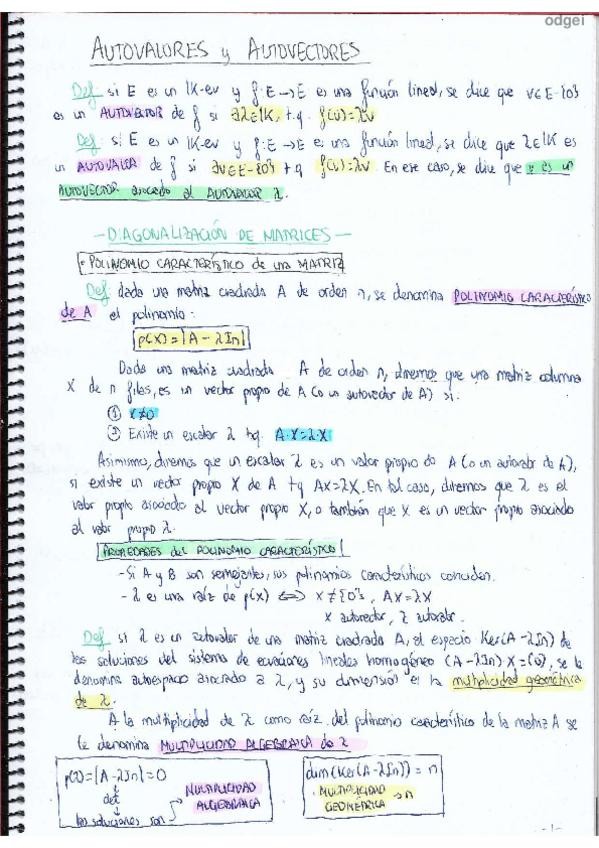 odgei
AUTOVALORES y AUTOVECTORES
Def si E es un IK-ev y f: E→E es una función lineal, se dice que v∈E-{0}
es un AUTOVECTOR de f si ∃λ∈IK, t.q. f(v)=λv
Def si E es un IK-ev y f: E→E es una función lineal, se dice que λ∈IK es
un AUTOVALOR de f si ∃v∈E-{0} tq f(v)=λv En ese caso, se dice que v es un
AUTOVECTOR asociado al AUTOVALOR λ.
- DIAGONALIZACIÓN DE MATRICES -
POLINOMIO CARACTERÍSTICO de una MATRIZ
Def dada una matriz cuadrada A de orden n, se denomina POLINOMIO CARACTERÍSTICO
de A el polinomio:
p(x)=|A-λIn|
Dada una matriz cuadrada A de orden n, diremos que una matriz columna
X de n filas, es un vector propio de A (o un autovector de A) si:
① X≠0
② Existe un escalar λ tq. A·X=λ·X
Asimismo, diremos que un escalar λ es un valor propio de A (o un autovalor de A),
si existe un vector propio X de A tq AX=λX. En tal caso, diremos que λ es el
valor propio asociado al vector propio X, o también que X es un vector propio asociado
al valor propio λ.
PROPIEDADES del POLINOMIO CARACTERÍSTICO
- Si A y B son semejantes, sus polinomios característicos coinciden.
- λ es una raíz de p(x) ⟺ X≠{0}, AX=λX
X autovector, λ autovalor.
Def si λ es un autovalor de una matriz cuadrada A, al espacio Ker(A-λIn) de
las soluciones del sistema de ecuaciones lineales homogéneo (A-λIn)X=(0), se le
denomina autoespacio asociado a λ, y su dimensión es la multiplicidad geométrica
de λ.
A la multiplicidad de λ como raíz del polinomio característico de la matriz A se
le denomina MULTIPLICIDAD ALGEBRAICA de λ
p(λ)=|A-λIn|=0
det
las soluciones son → MULTIPLICIDAD
ALGEBRAICA
dim(Ker(A-λIn)) = n
MULTIPLICIDAD
GEOMÉTRICA → n
-1-